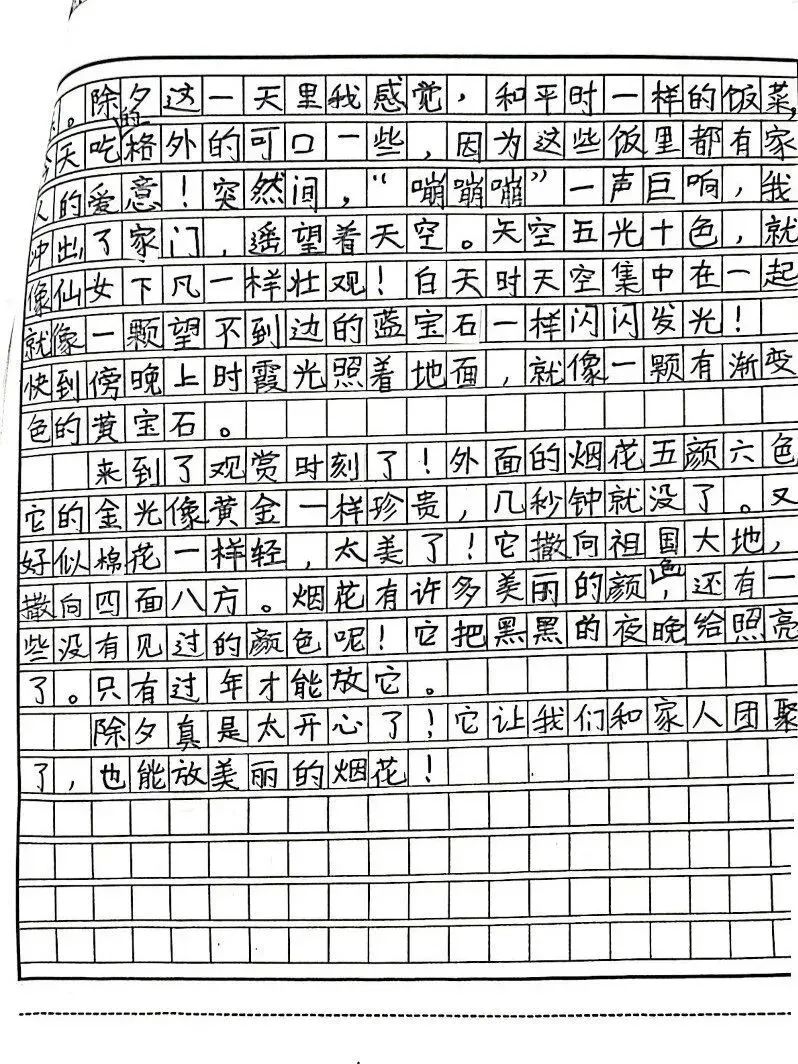 。除夕这一天里我感觉，和平时一样的饭菜，
今天吃的格外的可口一些，因为这些饭里都有家
人的爱意！突然间，“嘣嘣嘣”一声巨响，我
冲出了家门，遥望着天空。天空五光十色，就
像仙女下凡一样壮观！白天时天空集中在一起
就像一颗望不到边的蓝宝石一样闪闪发光！
快到傍晚上时霞光照着地面，就像一颗有渐变
色的黄宝石。
来到了观赏时刻了！外面的烟花五颜六色
它的金光像黄金一样珍贵，几秒钟就没了。又
好似棉花一样轻，太美了！它撒向祖国大地，
撒向四面八方。烟花有许多美丽的颜色，还有一
些没有见过的颜色呢！它把黑黑的夜晚给照亮
了。只有过年才能放它。
除夕真是太开心了！它让我们和家人团聚
了，也能放美丽的烟花！